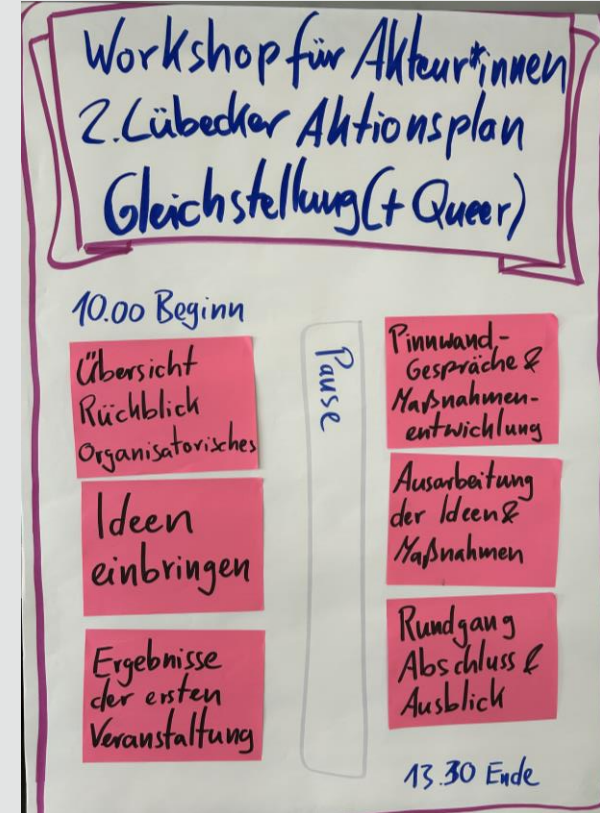 Workshop für Akteur*innen
2. Lübecker Aktionsplan
Gleichstellung (+ Queer)
10.00 Beginn
Übersicht
Rückblick
Organisatorisches
Ideen
einbringen
Ergebnisse
der ersten
Veranstaltung
Pause
Pinnwand-
Gespräche &
Maßnahmen-
entwicklung
Ausarbeitung
der Ideen &
Maßnahmen
Rundgang
Abschluss &
Ausblick
13.30 Ende